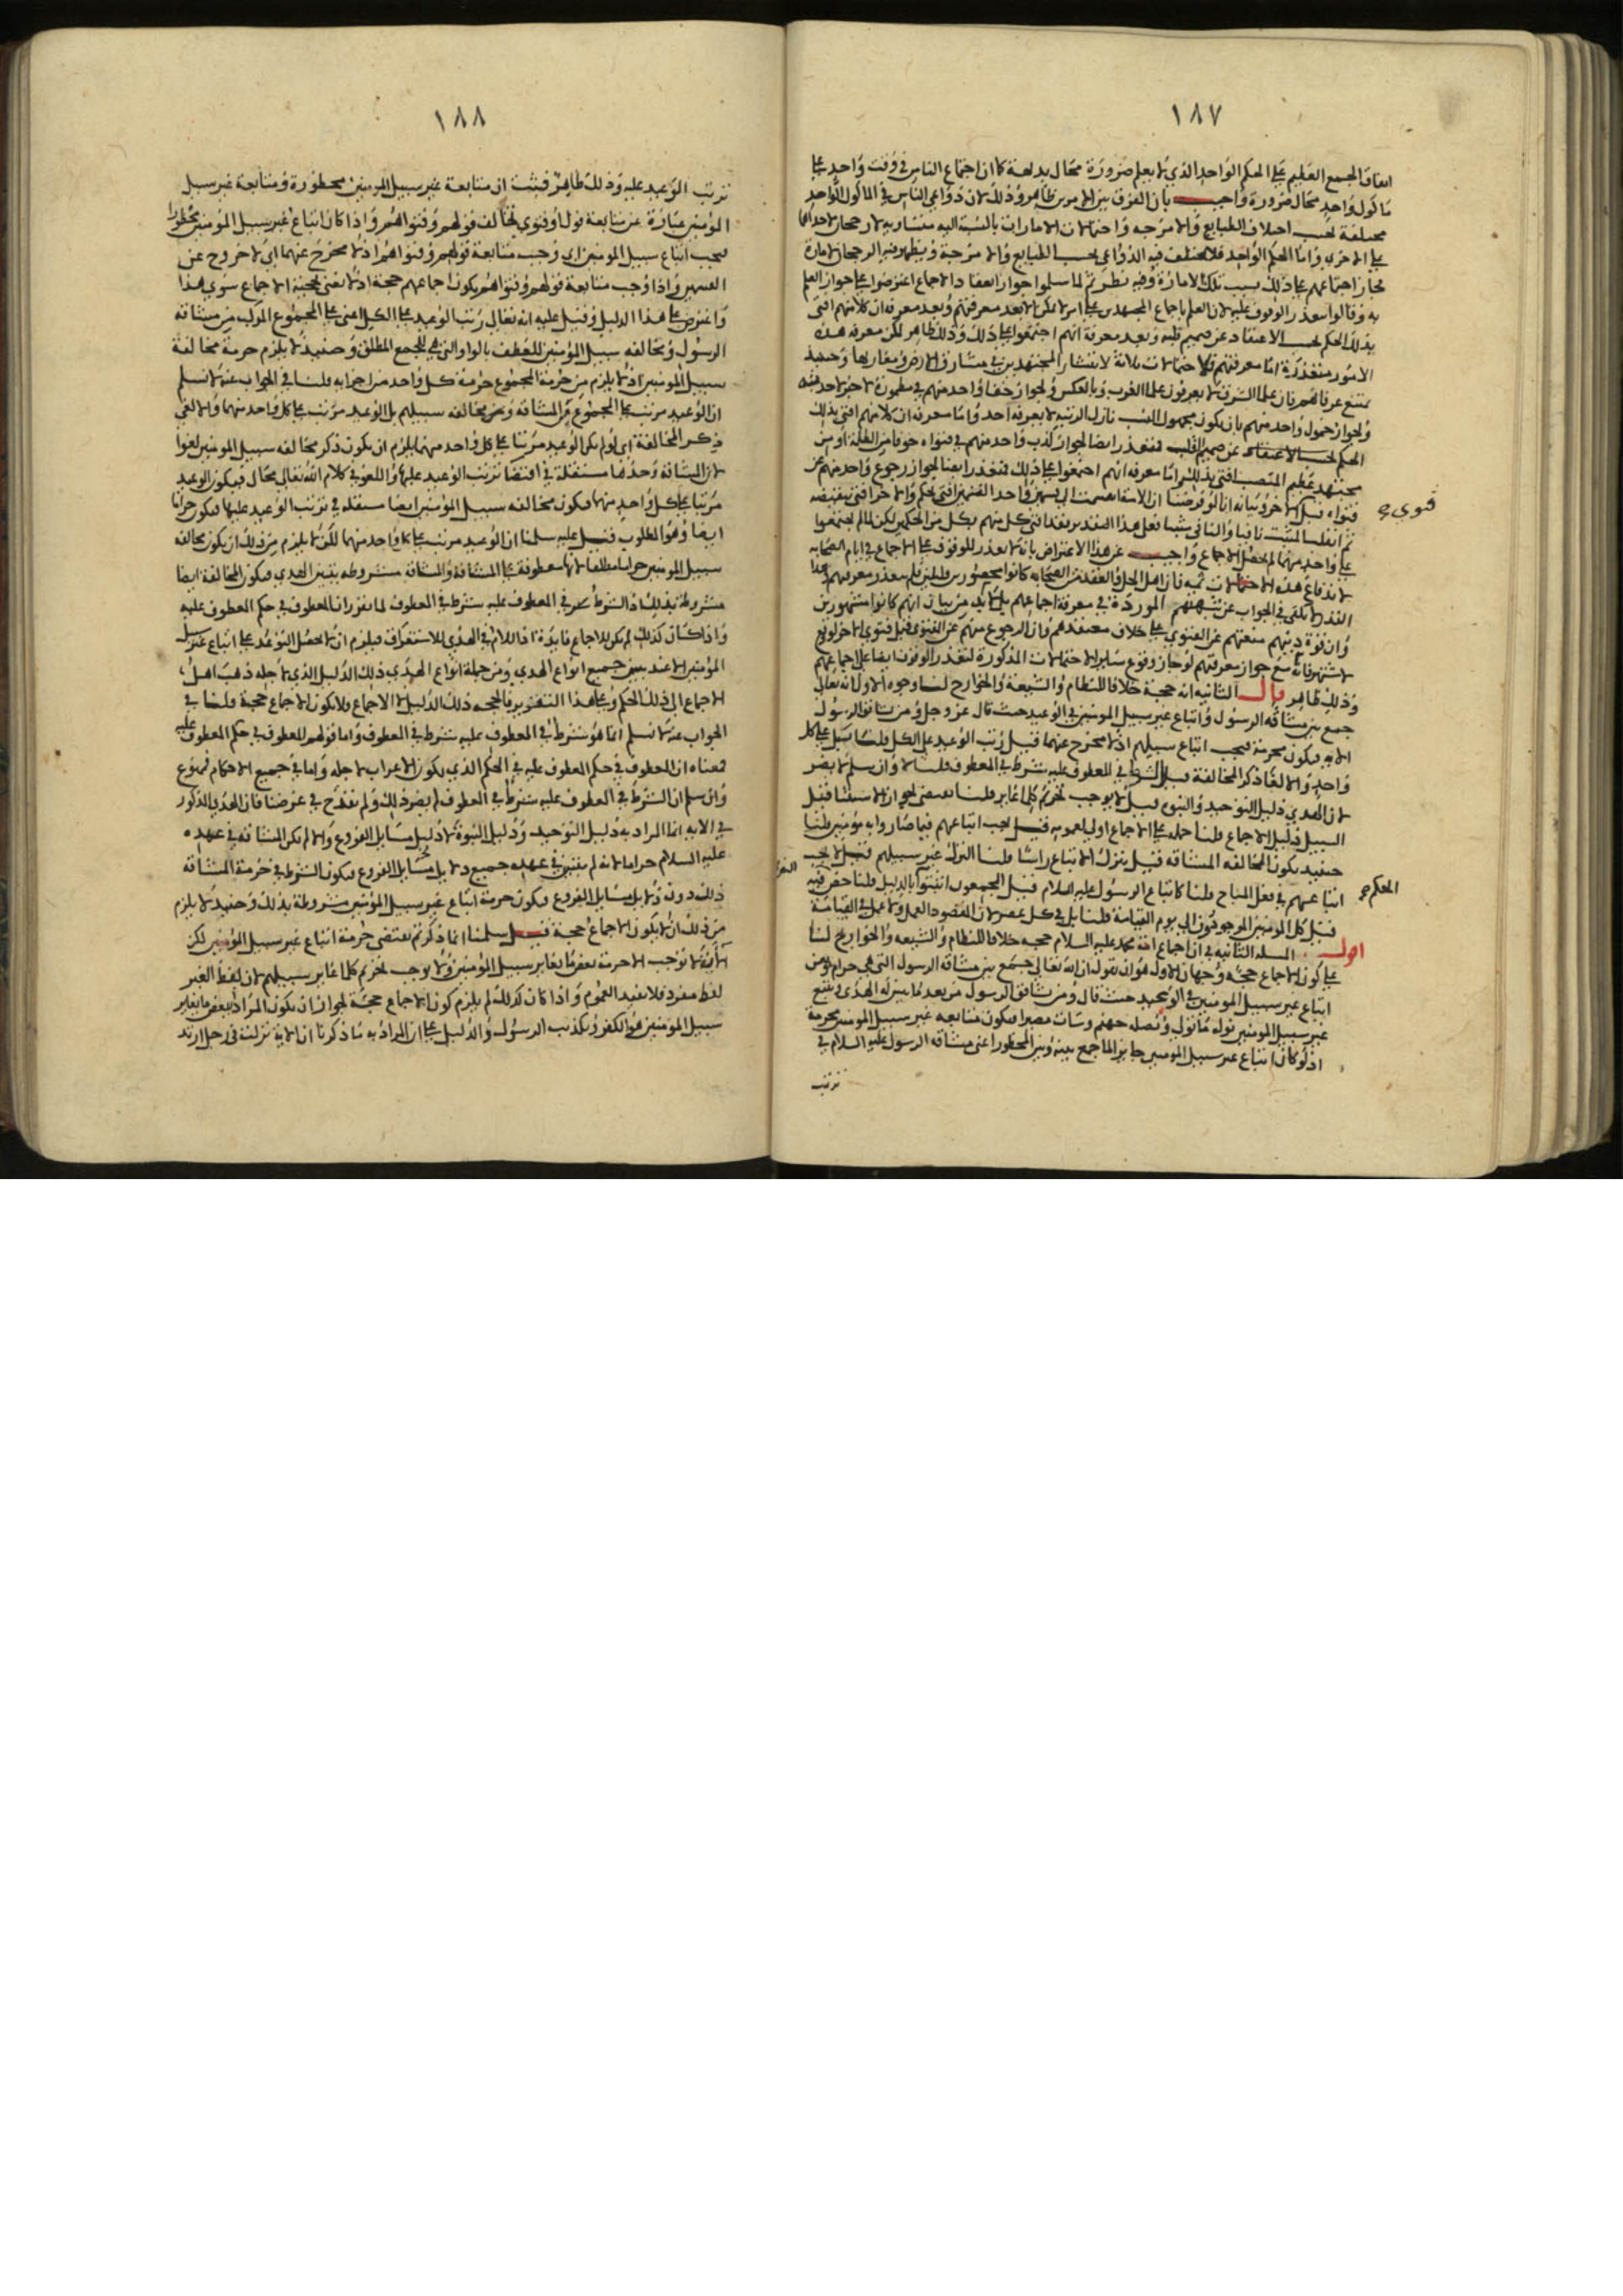 ١٨٧
اتفاق الجمع العظيم على الحكم الواحد الذي لا يعلم ضرورة محال بداهة كما ان اجتماع الناس في وقت واحد على
ماكول واحد محال ضرورة واجيب بان الفرق بين الامرين ظاهر وذلك لان دواعي الناس في الماكول الواحد
مختلفة بحسب اختلاف الطبايع والامزجة واحتمالات الامارات بالنسبة اليه متساوية لا رجحان لاحدها
على الاخرى واما الحكم الواحد فلا يختلف فيه الدواعي بحسب الطبايع والامزجة ويظهر فيه الرجحان لامارة
فجاز اجتماعهم على ذلك بسبب تلك الامارة وفيه نظر ثم لما سلموا جواز انعقاد الاجماع اعترضوا على جواز العلم
به وقالوا بتعذر الوقوف عليه لان العلم باجماع المجتهدين على امر لا يمكن الا بعد معرفتهم وبعد معرفة ان كلا منهم افتى
بذلك الحكم بحسب الاعتقاد عن صميم قلبه وبعد معرفة انهم اجتمعوا على ذلك وذلك ظاهر لكن معرفة هذه
الامور متعذرة اما معرفتهم فلاحتمالات ثلاثة لانتشار المجتهدين في مشارق الارض ومغاربها وحينئذ
يمتنع عرفانهم فان علما الشرق لا يعرفون علما الغرب وبالعكس ولجواز خفا واحد منهم في مطمورة لا خبر لاحد منه
ولجواز خمول واحد منهم بان يكون مجهول النسب نازل الرتبة لا يعرفه احد واما معرفة ان كلا منهم افتى بذلك
الحكم بحسب الاعتقاد عن صميم القلب فتتعذر ايضا لجواز كذب واحد منهم في فتواه خوفا من الظلمة او من
مجتهد عظيم المنصب افتى بذلك واما معرفة انهم اجتمعوا على ذلك فتتعذر ايضا لجواز رجوع واحد منهم عن
فتواه قبل الاخر وبيانه انا لو فرضنا ان الامة انقسمت الى قسمين واحد القسمين افتى بحكم والاخر افتى بنقيضه
فتوى
ثم انقلب المثبت نافيا والنافي مثبتا فعلى هذا التقدير فقد افتى كل منهم بكل من الحكمين لكن لما لم يجتمعوا
على واحد منهما لم يحصل الاجماع واجيب عن هذا الاعتراض بانه لا تعذر للوقوف على الاجماع في ايام الصحابة
لاندفاع هذه الاحتمالات ثمه فان اهل الحل والعقد من الصحابة كانوا محصورين قليلين فلم يتعذر معرفتهم وهذا
القدر لا يكفي في الجواب عن شبهتهم الموردة في معرفة اجماعهم بل لا بد من بيان انهم كانوا مشهورين
وان قوة دينهم منعتهم عن الفتوى على خلاف معتقدهم وان الرجوع منهم عن الفتوى قبل فتوى الاخر لو وقع
لاشتهر فانه مع جواز معرفتهم لو جاز وقوع ساير الاحتمالات المذكورة لتعذر الوقوف ايضا على اجماعهم
وذلك ظاهر قال الثانية انه حجة خلافا للنظام والشيعة والخوارج لنا وجوه الاول انه تعالى
جمع بين مشاقة الرسول واتباع غير سبيل المومنين في الوعيد حيث قال عز وجل ومن يشاقق الرسول
الاية فيكون محرمة فيجب اتباع سبيلهم اذ لا مخرج عنهما قيل رتب الوعيد على الكل قلنا بل على كل
واحد والا لغا ذكر المخالفة قيل الشرط في المعطوف عليه شرط في المعطوف قلنا لا وان سلم لا يضر
لان الهدى دليل التوحيد والنبوة قيل لا يوجب تحريم كل ما غاير قلنا يقتضي لجواز الاستثنا قيل
السبيل دليل الاجماع قلنا حمله على الاجماع اولى لعمومه قيل يجب اتباعهم فيما صاروا به مؤمنين قلنا
حينئذ يكون المخالفة المشاقة قيل يترك الاتباع راسا قلنا الترك غير سبيلهم قيل لا يجب
اتباعهم في فعل المباح قلنا كاتباع الرسول عليه السلام قيل المجمعون اثبتوا بالدليل قلنا خص فيه
الحكم
قيل كل المومنين الموجودون الى يوم القيامة قلنا بل في كل عصر لان المقصود العمل ولا عمل في القيامة
اقول المسلة الثانية في ان اجماع امة محمد عليه السلام حجة خلافا للنظام والشيعه والخوارج لنا
على كون الاجماع حجة وجهان الاول هو ان نقول ان الله تعالى جمع بين مشاقة الرسول التي هي حرام وبين
اتباع غير سبيل المومنين في الوعيد حيث قال ومن يشاقق الرسول من بعد ما تبين له الهدى ويتبع
غير سبيل المومنين نوله ما تولى ونصله جهنم وساءت مصيرا فيكون متابعه غير سبيل المومنين محرمة
اذ لو كان اتباع غير سبيل المومنين جايزا لما جمع بينه وبين المحظور اعنى مشاقة الرسول عليه السلام في
ترتب
١٨٨
ترتب الوعيد عليه وذلك ظاهر فثبت ان متابعة غير سبيل المومنين محظورة ومتابعة غير سبيل
المؤمنين عبارة عن متابعة قول او فتوى تخالف قولهم وفتواهم واذا كان اتباع غير سبيل المؤمنين محظورا
فيجب اتباع سبيل المومنين اي وجب متابعة قولهم وفتواهم اذ لا مخرج عنهما اي لا خروج عن
القسمين واذا وجب متابعة قولهم وفتواهم يكون اجماعهم حجة اذ لا نعني بحجية الاجماع سوى هذا
واعترض على هذا الدليل وقيل عليه انه تعالى رتب الوعيد على الكل اعنى على المجموع المركب من مشاقة
الرسول ومخالفة سبيل المؤمنين للعطف بالواو التي هي للجمع المطلق وحينئذ لا يلزم حرمة مخالفة
سبيل المومنين اذ لا يلزم من حرمة المجموع حرمة كل واحد من اجزايه قلنا في الجواب عنه لا نسلم
ان الوعيد مرتب على المجموع من المشاقة ومن مخالفة سبيلهم بل الوعيد مرتب على كل واحد منهما والا لغى
ذكر المخالفة اي لو لم يكن الوعيد مرتبا على كل واحد منهما يلزم ان يكون ذكر مخالفه سبيل المومنين لغوا
لان المشاقة وحدها مستقلة في اقتضا ترتب الوعيد عليها واللغو في كلام الله تعالى محال فيكون الوعيد
مرتبا على كل واحد منهما فيكون مخالفة سبيل المؤمنين ايضا مستقلة في ترتب الوعيد عليها فيكون حراما
ايضا وهو المطلوب فقيل عليه سلمنا ان الوعيد مرتب على كل واحد منهما لكن لا يلزم من ذلك ان يكون مخالفة
سبيل المومنين حراما مطلقا لانها معطوفة على المشاقة والمشاقة مشروطه بتبين الهدى فيكون المخالفة ايضا
مشروطة بذلك اذ الشرط في المعطوف عليه شرط في المعطوف لما تقرر ان المعطوف في حكم المعطوف عليه
واذا كان كذلك لم يكن للاجماع فايدة اذ اللام في الهدى للاستغراق فيلزم ان لا يحصل التوعد على اتباع غير سبيل
المؤمنين الا عند تبين جميع انواع الهدى ومن جملة انواع الهدى ذلك الدليل الذي لاجله ذهب اهل
الاجماع الى ذلك الحكم وعلى هذا التقدير فالحجة ذلك الدليل لا الاجماع فلا يكون الاجماع حجة قلنا في
الجواب عنه لا نسلم ان ما هو شرط في المعطوف عليه شرط في المعطوف واما قولهم المعطوف في حكم المعطوف عليه
فمعناه ان المعطوف في حكم المعطوف عليه في الحكم الذي يكون الاعراب لاجله واما في جميع الاحكام فممنوع
وان سلم ان الشرط في المعطوف عليه شرط في المعطوف لم يضر ذلك ولم يقدح في غرضنا فان الهدى المذكور
في الاية انما المراد به دليل التوحيد ودليل النبوة لا دليل مسايل الفروع والا لم يكن المشاقة في عهده
عليه السلام حراما لانه لم يتبين في عهده جميع دلايل مسايل الفروع فيكون الشرط في حرمة المشاقة
ذلك دون دلايل مسايل الفروع فيكون حرمة اتباع غير سبيل المؤمنين مشروطة بذلك وحينئذ لا يلزم
من ذلك ان لا يكون الاجماع حجة قيل سلمنا ان ما ذكرتم يقتضي حرمة اتباع غير سبيل المؤمنين لكن
الاية لا توجب الا حرمة بعض ما يغاير سبيل المؤمنين ولا يوجب تحريم كل ما غاير سبيلهم لان لفظ الغير
لفظ مفرد فلا يفيد العموم واذا كان كذلك لم يلزم كون الاجماع حجة لجواز ان يكون المراد ببعض ما يغاير
سبيل المؤمنين هو الكفر وتكذيب الرسول والدليل على ان المراد به ما ذكرنا ان الاية نزلت في رجل ارتد